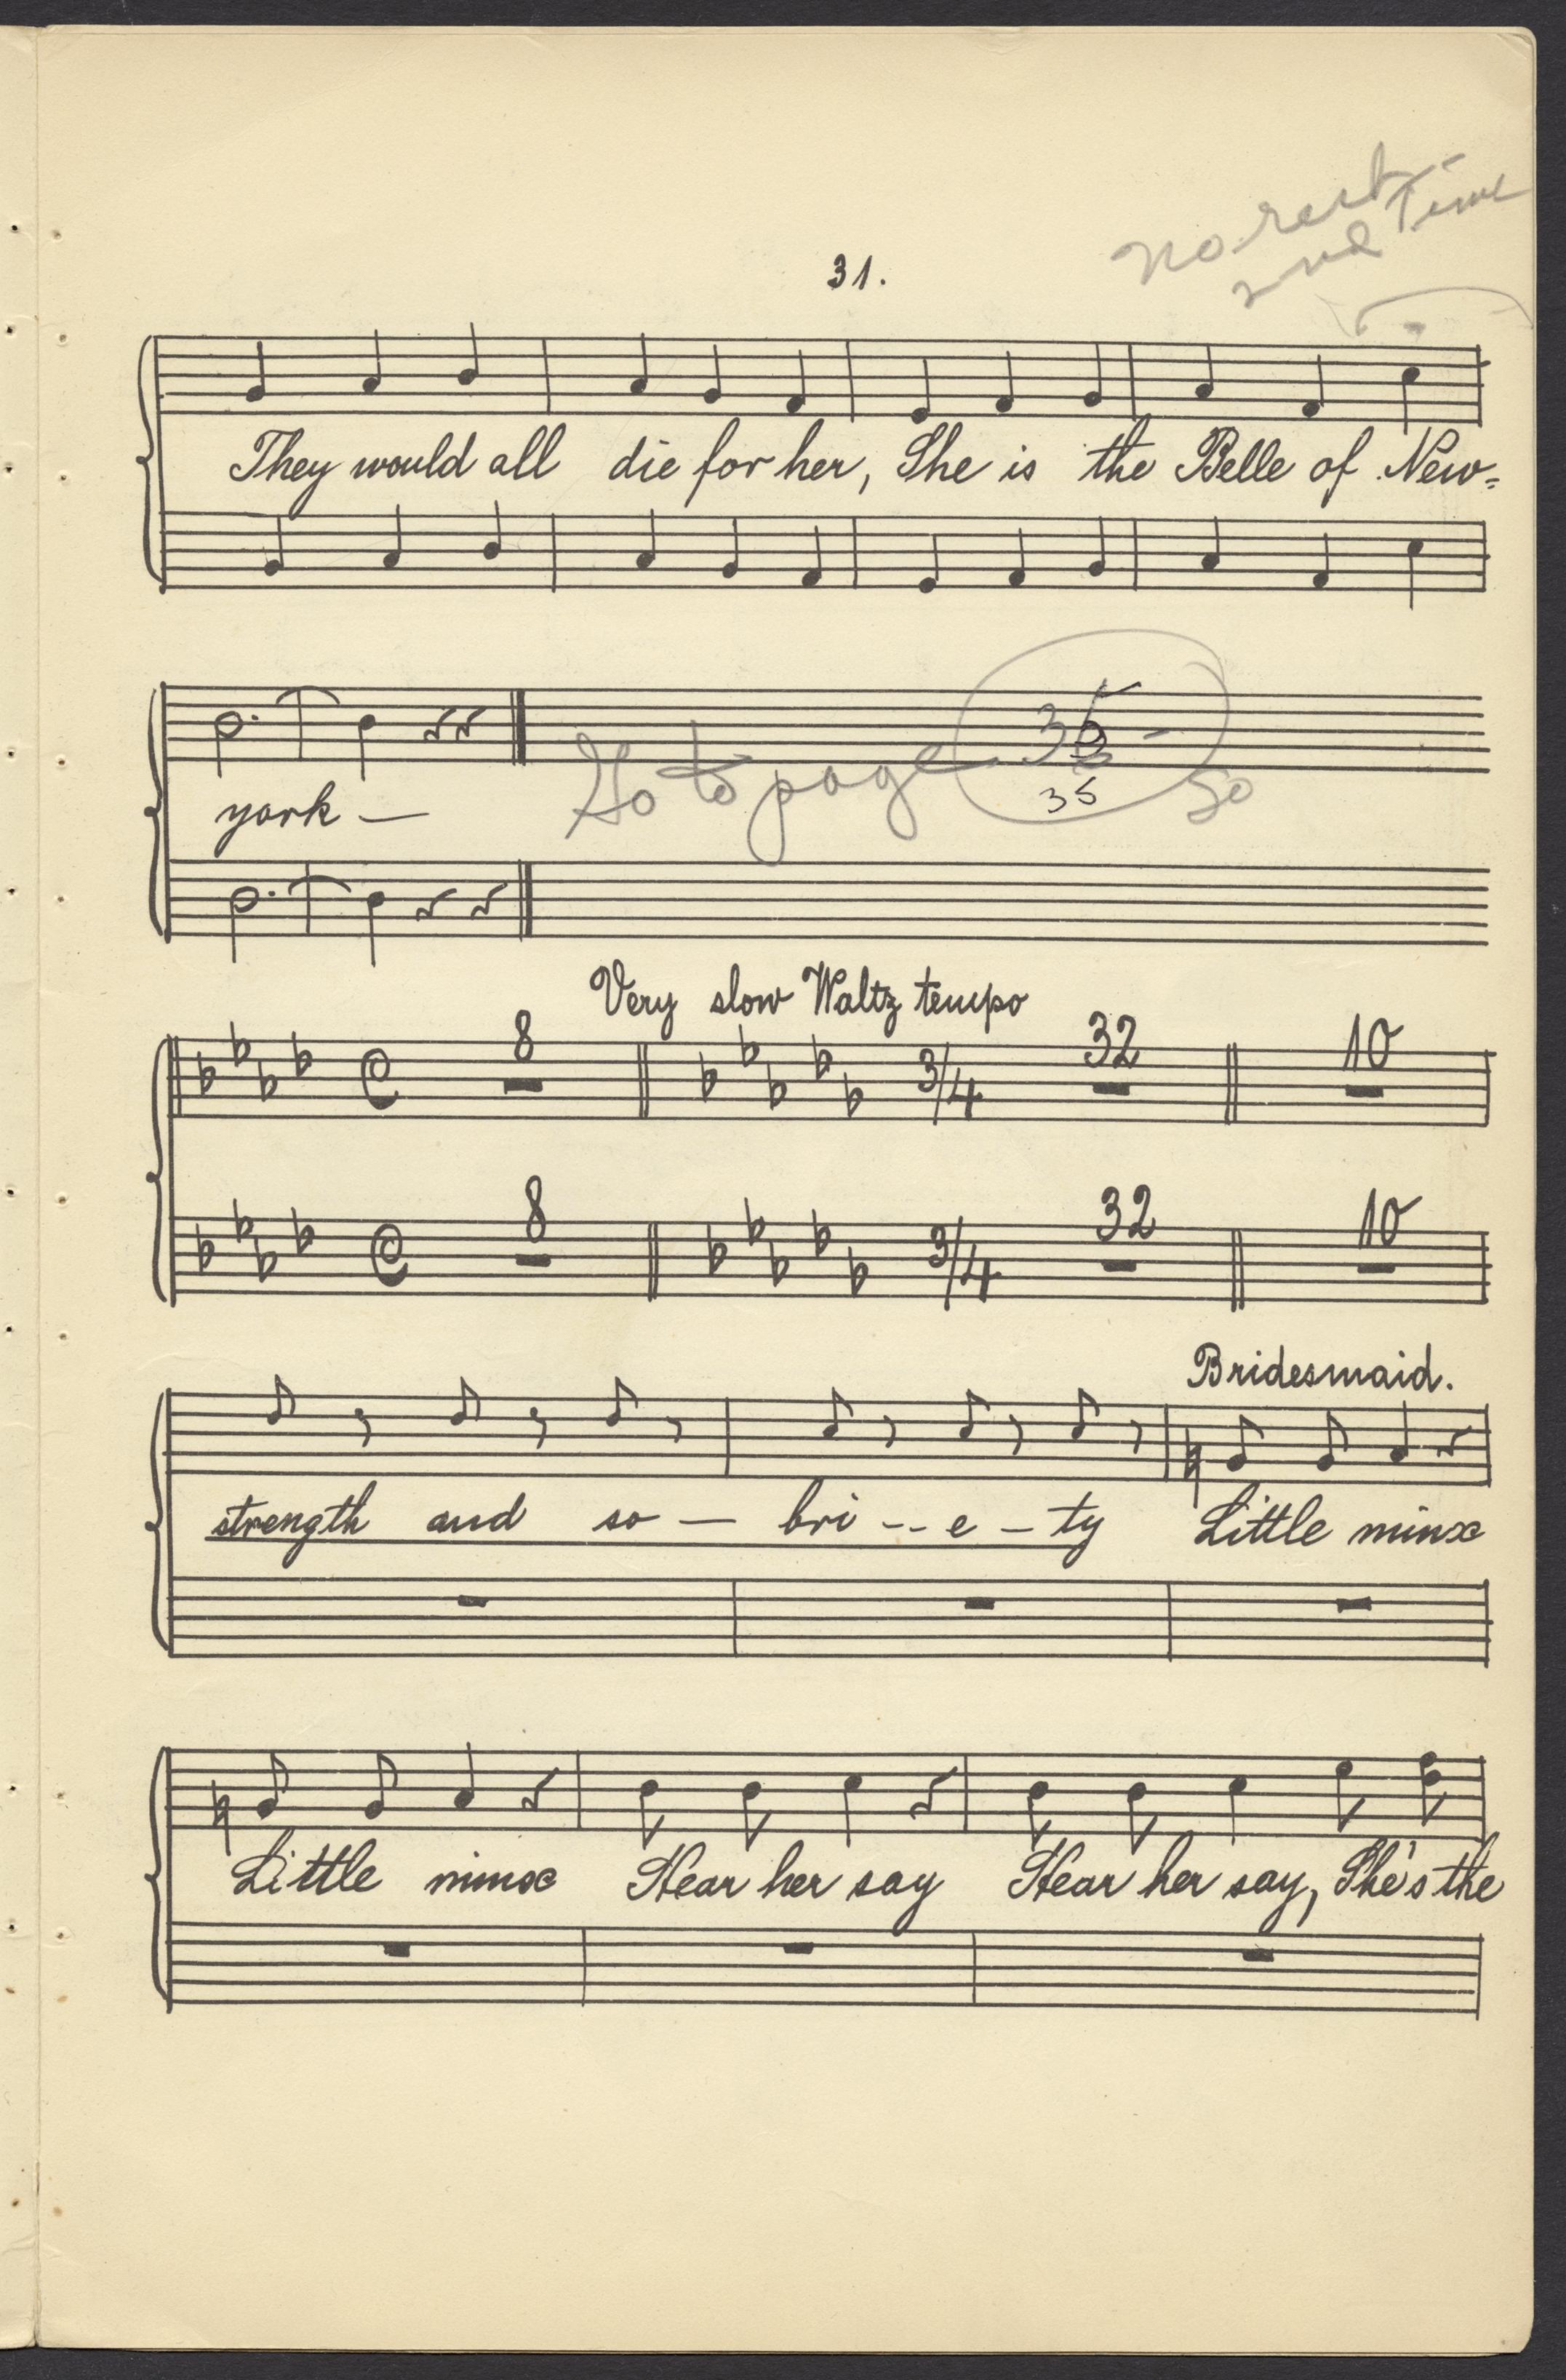 no rest
2nd Time
31.
They would all die for her, She is the Belle of New=
york —
Go to page 35 -
35
Very slow Waltz tempo
8 3/4 32 10
8 3/4 32 10
Bridesmaid.
strength and so — bri -- e - ty Little minx
Little minx Hear her say Hear her say, She's the